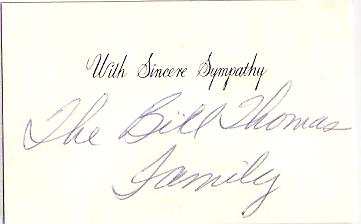 With Sincere Sympathy
The Bill Thomas
Family